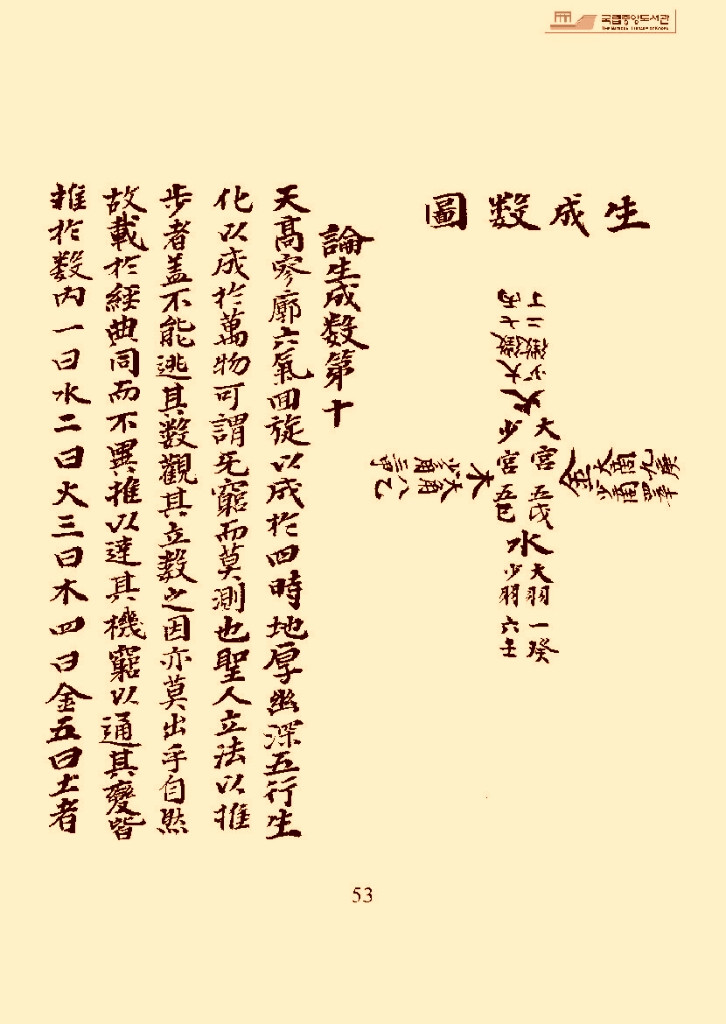 국립중앙도서관
THE NATIONAL LIBRARY OF KOREA
生成數圖
火
少徵二丁
大徵七丙
金
大商九庚
少商四辛
大宮五戊
少宮五己
木
大角八乙
少角三甲
水
大羽一癸
少羽六壬
論生成數第十
天髙寥廓六氣囬旋以成於四時地厚幽深五行生
化以成於萬物可謂无窮而莫測也聖人立法以推
步者盖不能逃其數觀其立數之因亦莫出乎自然
故載於經典同而不異推以達其機窮以通其變皆
推於数内一曰水二曰火三曰木四曰金五曰土者
53